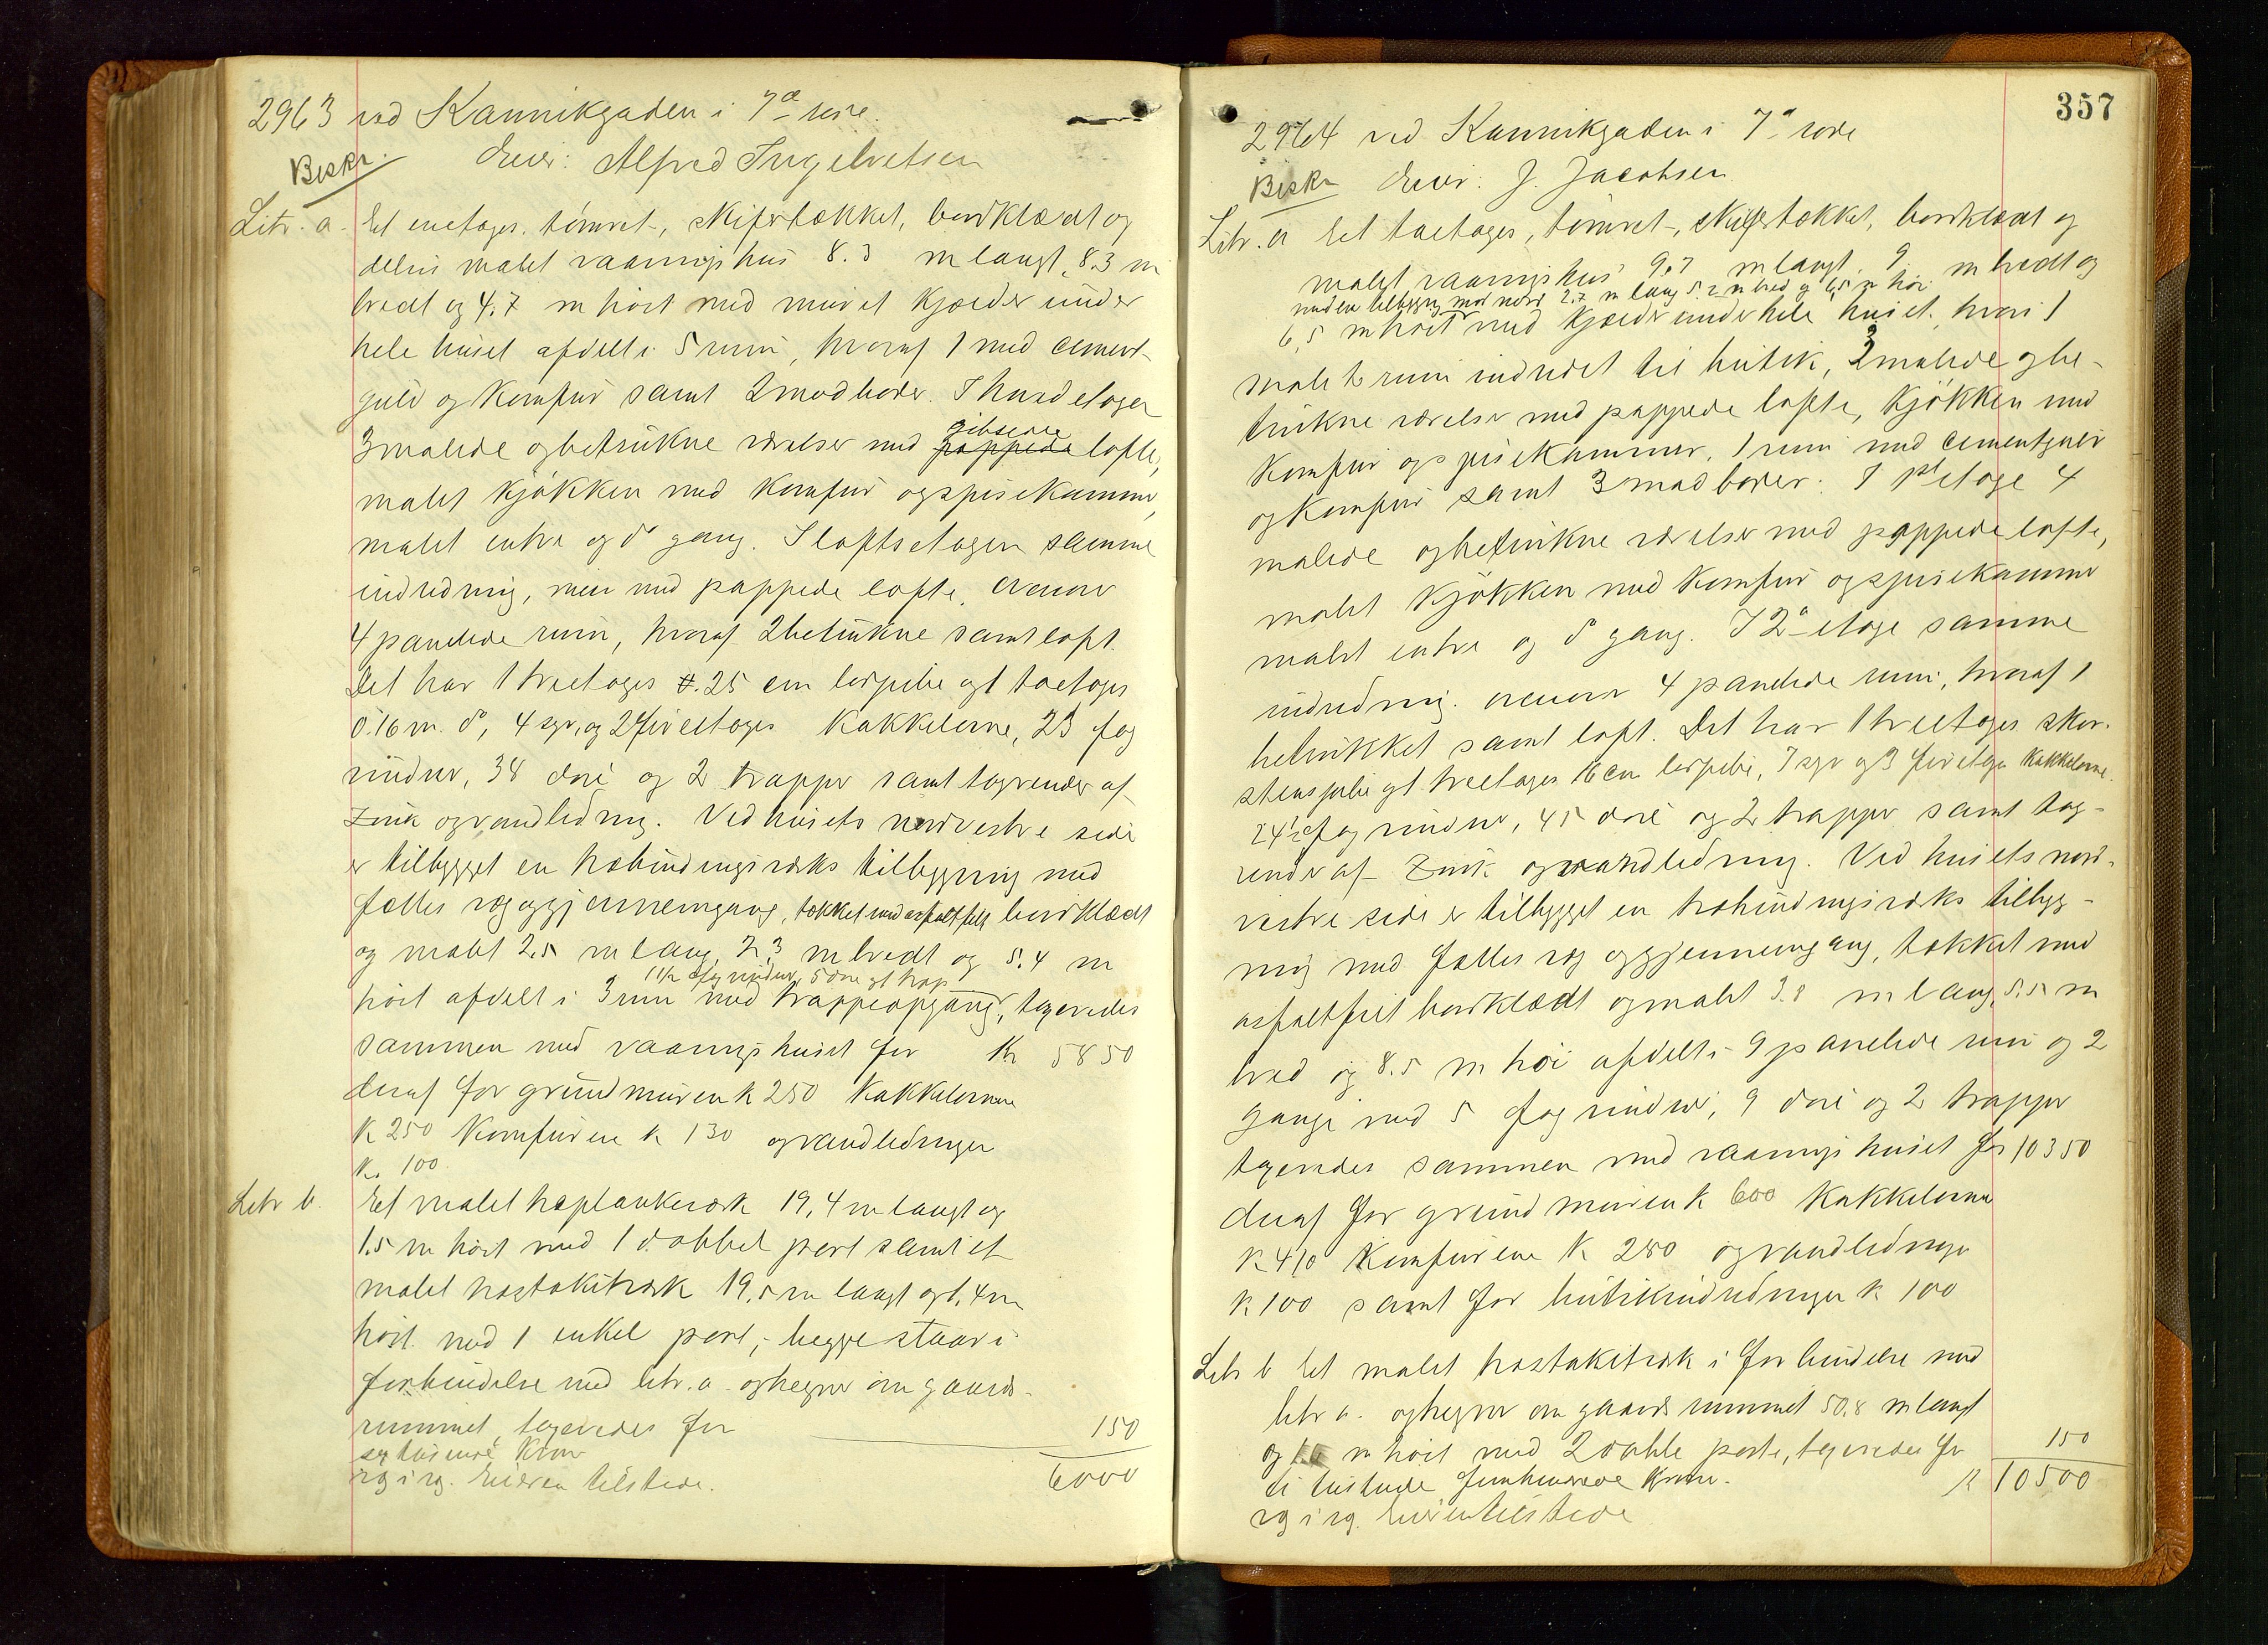 2963 ved Kannikgaden i 7de rode.
Beskr. Eier: Alfred Ingebretsen
Litr. a. Et enetages, tømret-, skifertækket, bordklædt og
delvis malet vaaningshus 8.3 m langt, 8.3 m
bredt og 4.7 m høit med muret kjælder under
hele huset afdelt i 5 rum, hvoraf 1 med cement-
gulv og komfur samt 2 madboder. I husets etagen
3 malede og betrukne værelser med pappede gibsede lofte,
malet kjøkken med komfur og spisekammer,
malet entre og do gang. I loftsetagen samme
indredning, men med pappede lofte, ovenover
4 panelede rum, hvoraf 2 betrukne samt loft.
Det har 1 treetages 25 cm lerpibe og 1 toetages
0.16 m. do, 4 syv, og 2 fireetages kakkelovne, 23 fag
vinduer, 38 døre og 2 trapper samt tagrender af
zink og vandledning. Ved husets nordvestre side
er tilbygget en træbindingsværks tilbygning med
fælles væg og gjennemgang, tækket med asfaltfilt bordklædt
og malet 2.5 m lang, 2,3 m bredt og 5.4 m
1 1/2 fag vinduer, 5 døre og 1 trap
høit afdelt i 3 rum med trappeopgang, taxeredes
sammen med vaaningshuset for Kr 5850
deraf for grundmuren k 250 kakkelovnene
K 250 komfurene k 130 og vandledningen
K. 100.
Litr b. Et malet træplankeværk 19,4 m langt og
1.5 m høit med 1 dobbel port samt et
malet træstakitværk 19,5 m langt og 1,4 m
høit med 1 enkel port, begge staar i
forbindelse med litr. a. og hegner om gaards-
rummet, taxeredes for 150
sex tusinde Kroner 6000
rg i rg. Eieren tilstede.
357
2964 ved Kannikgaden i 7de rode
Beskr Eier: J. Jacobsen
Litr. a Et toetages, tømret-, skifertækket, bordklædt og
malet vaaningshus 9.7 m langt, 9. m bredt og
med en tilbygning mod nord 2.7 m lang 5.2 m bred og 6,5 m høi
6,5 m høit med kjælder under hele huset, hvori 1
malet rum indredet til butik, 3 malede og be-
trukne værelser med pappede lofte, kjøkken med
komfur og spisekammer, 1 rum med cementgulv
og komfur samt 3 madboder. I 1ste etage 4
malede og betrukne værelser med pappede lofte,
malet kjøkken med komfur og spisekammer
malet entre og do gang. I 2den etage samme
indredning. ovenover 4 panelede rum, hvoraf 1
betrukket samt loft. Det har 1 treetages skor-
stenspibe og 1 treetages 16 cm lerpibe, 7 syv og 3 fireetages kakkelovne.
24 1/2 fag vinduer, 45 døre og 2 trapper samt tag-
render af zink og vandledning. Ved husets nord-
vestre side er tilbygget en træbindingsværks tilbyg-
ning med fælles væg og gjennemgang, tækket med
asfaltfilt bordklædt og malet 3.8 m lang, 5.5 m
bred og 8.5 m høi afdelt i 9 panelede rum og 2
gange med 5 fag vinduer, 9 døre og 2 trapper
taxeredes sammen med vaaningshuset for 10350
deraf for grundmuren k 600 kakkelovnene
K 410 komfurene K 280 og vandledningen
K 100 samt for butikindredningen K 100
Litr b Et malet træstakitværk i forbindelse med
litr a. og hegner om gaardsrummet 50,8 m langt
og m høit med 2 doble porte, taxeredes for 150
ti tusinde femhundrede Kroner. K 10500
rg i rg. Eieren tilstede